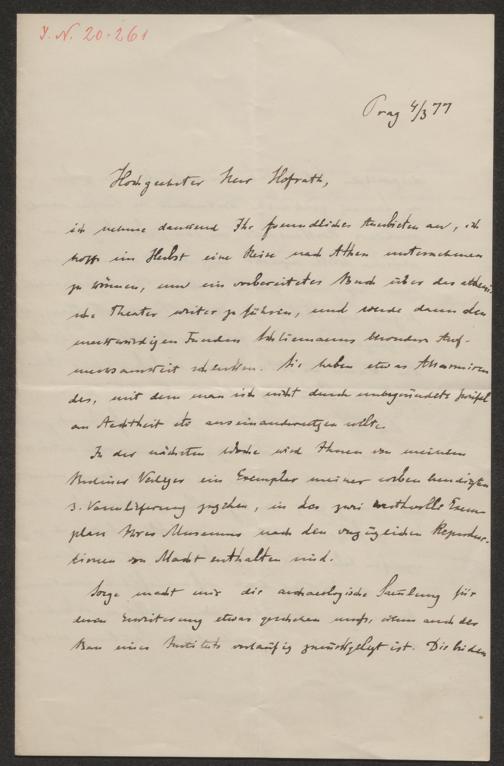 J. N. 20.261
Prag 4/3 77
Hochgeehrter Herr Hofrath,
ich nehme dankend Ihr freundliches Anbieten an, ich
hoffe im Herbst eine Reise nach Athen unternehmen
zu können, um ein vorbereitetes Buch über das atheni-
sche Theater weiter zu führen, und werde dann den
merkwürdigen Funden Schliemanns besondere Auf-
merksamkeit schenken. Sie haben etwas
des, mit dem man sich nicht durch unbegründete Zweifel
an Aechtheit etc auseinandersetzen sollte.
In der nächsten Woche wird Ihnen von meinem
Berliner Verleger ein Exemplar meiner soeben beendigten
3. Vasenlieferung zugehen, in das zwei werthvolle Exem-
plare Ihres Museums nach den vorzüglichen Reproduc-
tionen von Macht enthalten sind.
Sorge macht mir die archaeologische Sammlung für
deren Erweiterung etwas geschehen muss, wenn auch der
Bau eines Instituts vorläufig zurückgelegt ist. Die beiden